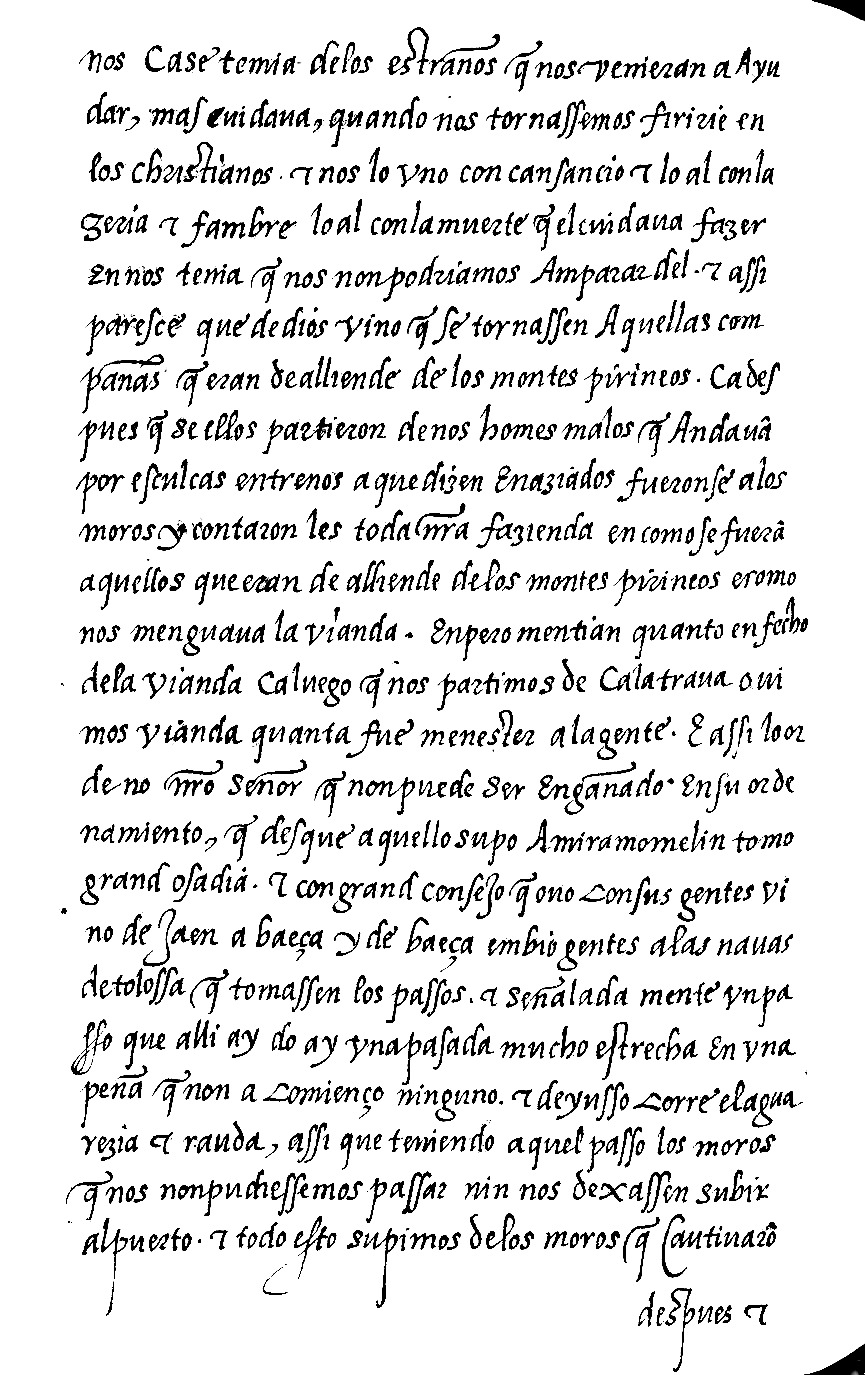 nos Case temia delos estranos q̃ nos venieran a Ayu
dar, mas cuidaua, quando nos tornassemos firirie en
los christianos. ⁊ nos lo vno con cansancio ⁊ lo al conla
zeria ⁊ fambre lo al conla muerte q̃ el cuidaua fazer
En nos tenia q̃ nos non podriamos Amparar del. ⁊ assi
paresce que de dios vino q̃ se tornassen Aquellas com
panãs q̃ eran de alliende de los montes pirineos. Ca des
pues q̃ se ellos partieron de nos homes malos q̃ Andauã
por esculcas entre nos a que dizen Enaziados fueronse alos
moros y contaron les toda nr̃a fazienda en como se fuerã
aquellos que eran de alliende delos montes pirineos e como
nos menguaua la vianda. Enpero mentian quanto en fecho
dela vianda Ca luego q̃ nos partimos de Calatraua oui
mos vianda quanta fue menester a la gente. E assi lo or
deno nr̃o Señor q̃ non puede Ser Enganãdo. En su orde
namiento, q̃ desque aquello supo Amiramomelin tomo
grand osadia. ⁊ con grand consejo q̃ ouo Con sus gentes vi
no de Jaen a baeça y de baeça embio gentes alas nauas
de tolossa q̃ tomassen los passos. ⁊ señalada mente vn pa
sso que alli ay do ay vna pasada mucho estrecha En vna
penã q̃ non a Comienço ninguno. ⁊ de yusso Corre el agua
rezia ⁊ rauda, assi que teniendo aquel passo los moros
q̃ nos non pudiessemos passar nin nos dexassen subir
al puerto. ⁊ todo esto supimos delos moros q̃ Cautiuarõ
despues ⁊